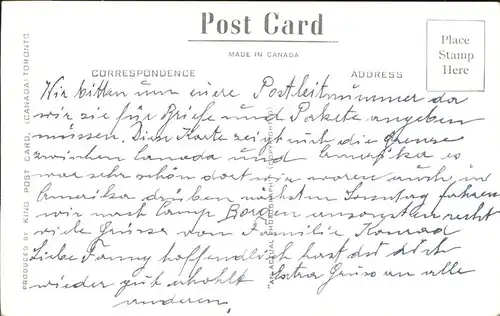 Post Card
MADE IN CANADA
CORRESPONDENCE
ADDRESS
Place
Stamp
Here
Wir bitten um eiere Postleitnummer da
wir sie für Briefe und Pakete angeben
müssen. Diese Karte zeigt euch die Grenze
zwischen Canada und Amerika es
war sehr schön dort wir waren auch in
Amerika drüben nächsten Sonntag fahren
wir nach Camp Borden ansonsten recht
viele Grüsse von Familie Konrad
Liebe Fanny hoffendlich hast du dich
wieder gut erhohlt Extra Gruss an alle
anderen.
PRODUCED BY KING POST CARD, (CANADA) TORONTO
"AN ACTUAL PHOTOGRAPH" (COPYRIGHTED)